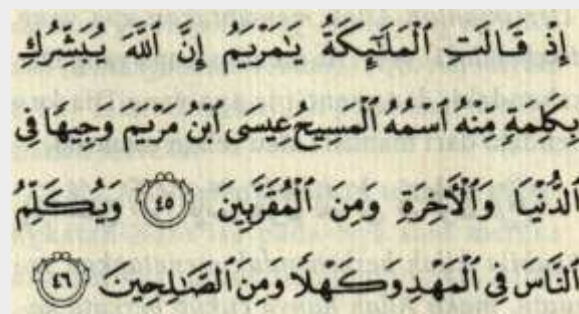 إِذْ قَالَتِ ٱلْمَلَـٰٓئِكَةُ يَـٰمَرْيَمُ إِنَّ ٱللَّهَ يُبَشِّرُكِ
بِكَلِمَةٍ مِّنْهُ ٱسْمُهُ ٱلْمَسِيحُ عِيسَى ٱبْنُ مَرْيَمَ وَجِيهًا فِى
ٱلدُّنْيَا وَٱلْأَخِرَةِ وَمِنَ ٱلْمُقَرَّبِينَ ٤٥ وَيُكَلِّمُ
ٱلنَّاسَ فِى ٱلْمَهْدِ وَكَهْلًا وَمِنَ ٱلصَّـٰلِحِينَ ٤٦